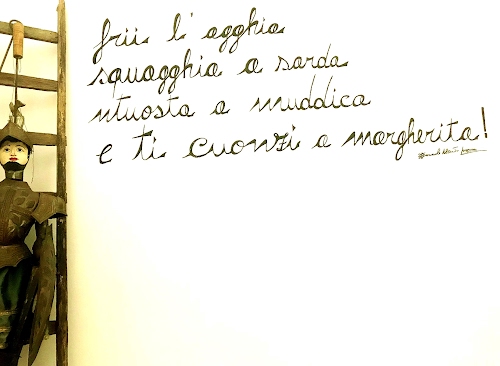 frii l' agghia
squagghia a sarda
ntuosta a muddica
e ti cuonzi a margherita!